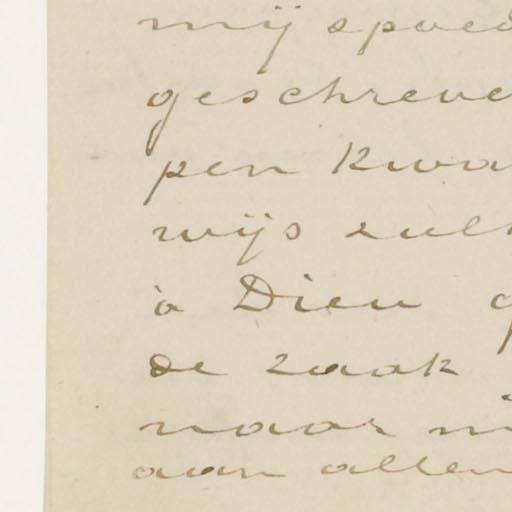 mij spoed
geschreve
pen kwa
wijs zult
à Dieu g
de zaak
naar mi
aan allen